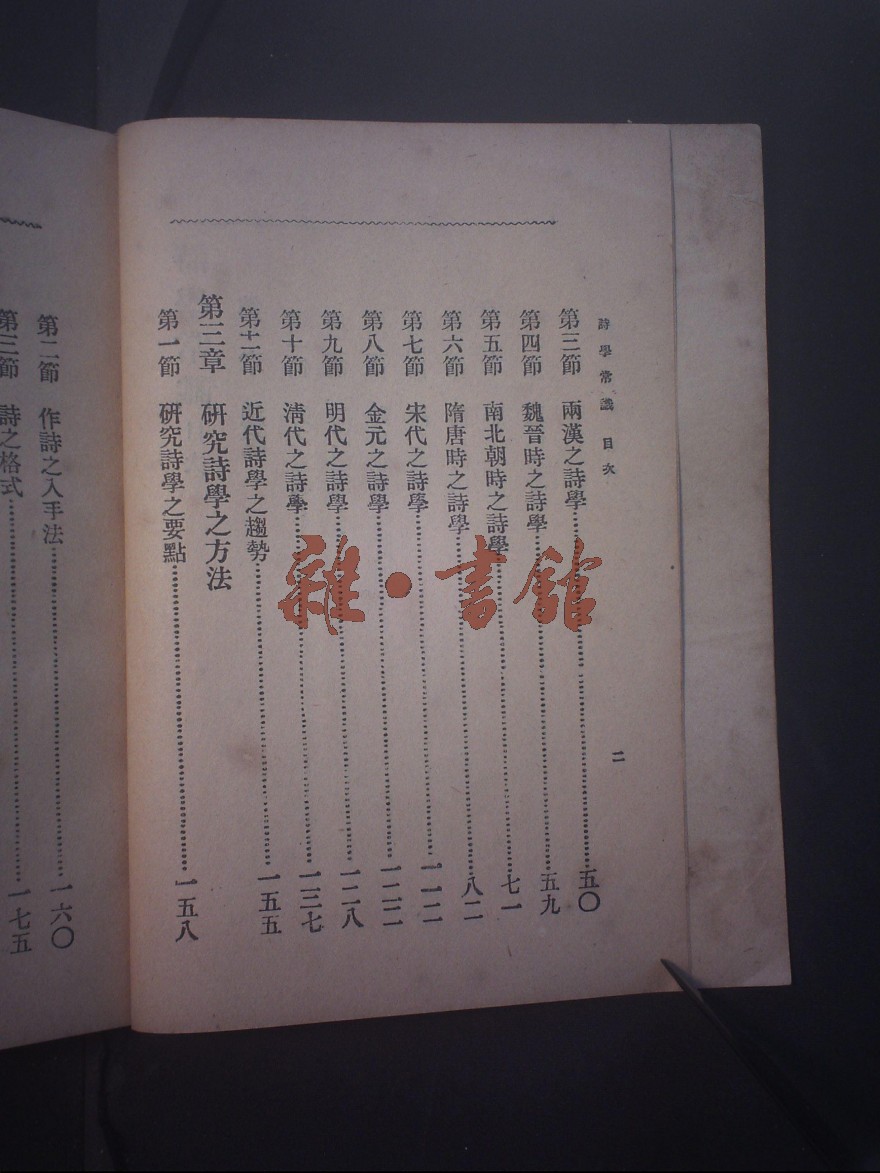 詩學常識 目次
二
第三節 兩漢之詩學……五〇
第四節 魏晉時之詩學……五九
第五節 南北朝時之詩學……七一
第六節 隋唐時之詩學……八二
第七節 宋代之詩學……一一二
第八節 金元之詩學……一二二
第九節 明代之詩學……一二八
第十節 淸代之詩學……一三七
第十一節 近代詩學之趨勢……一五五
第三章 研究詩學之方法
第一節 研究詩學之要點……一五八
第二節 作詩之入手法……一六〇
第三節 詩之格式……一七五
雜·書館